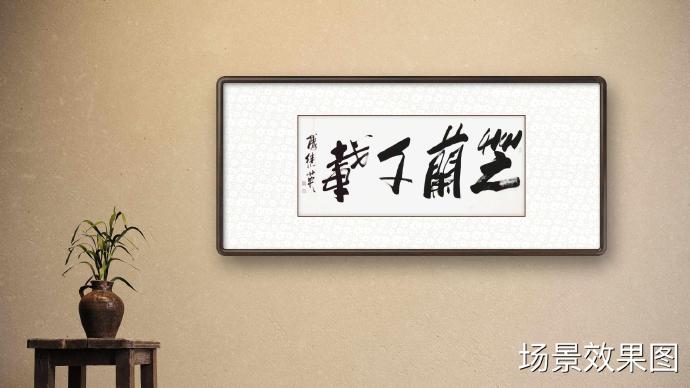 芝蘭千載
场景效果图